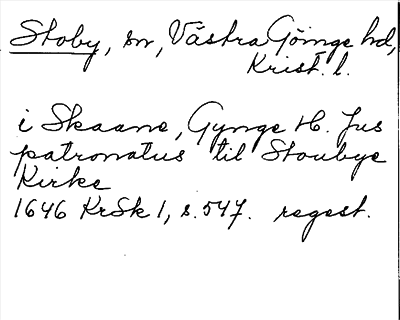 Stoby, sn, Västra Göinge hd,
Krist. l.
i Skaane, Gynge H. Jus
patronatus til Stoubye
Kirke
1646 KrSk 1, s. 547. regest.